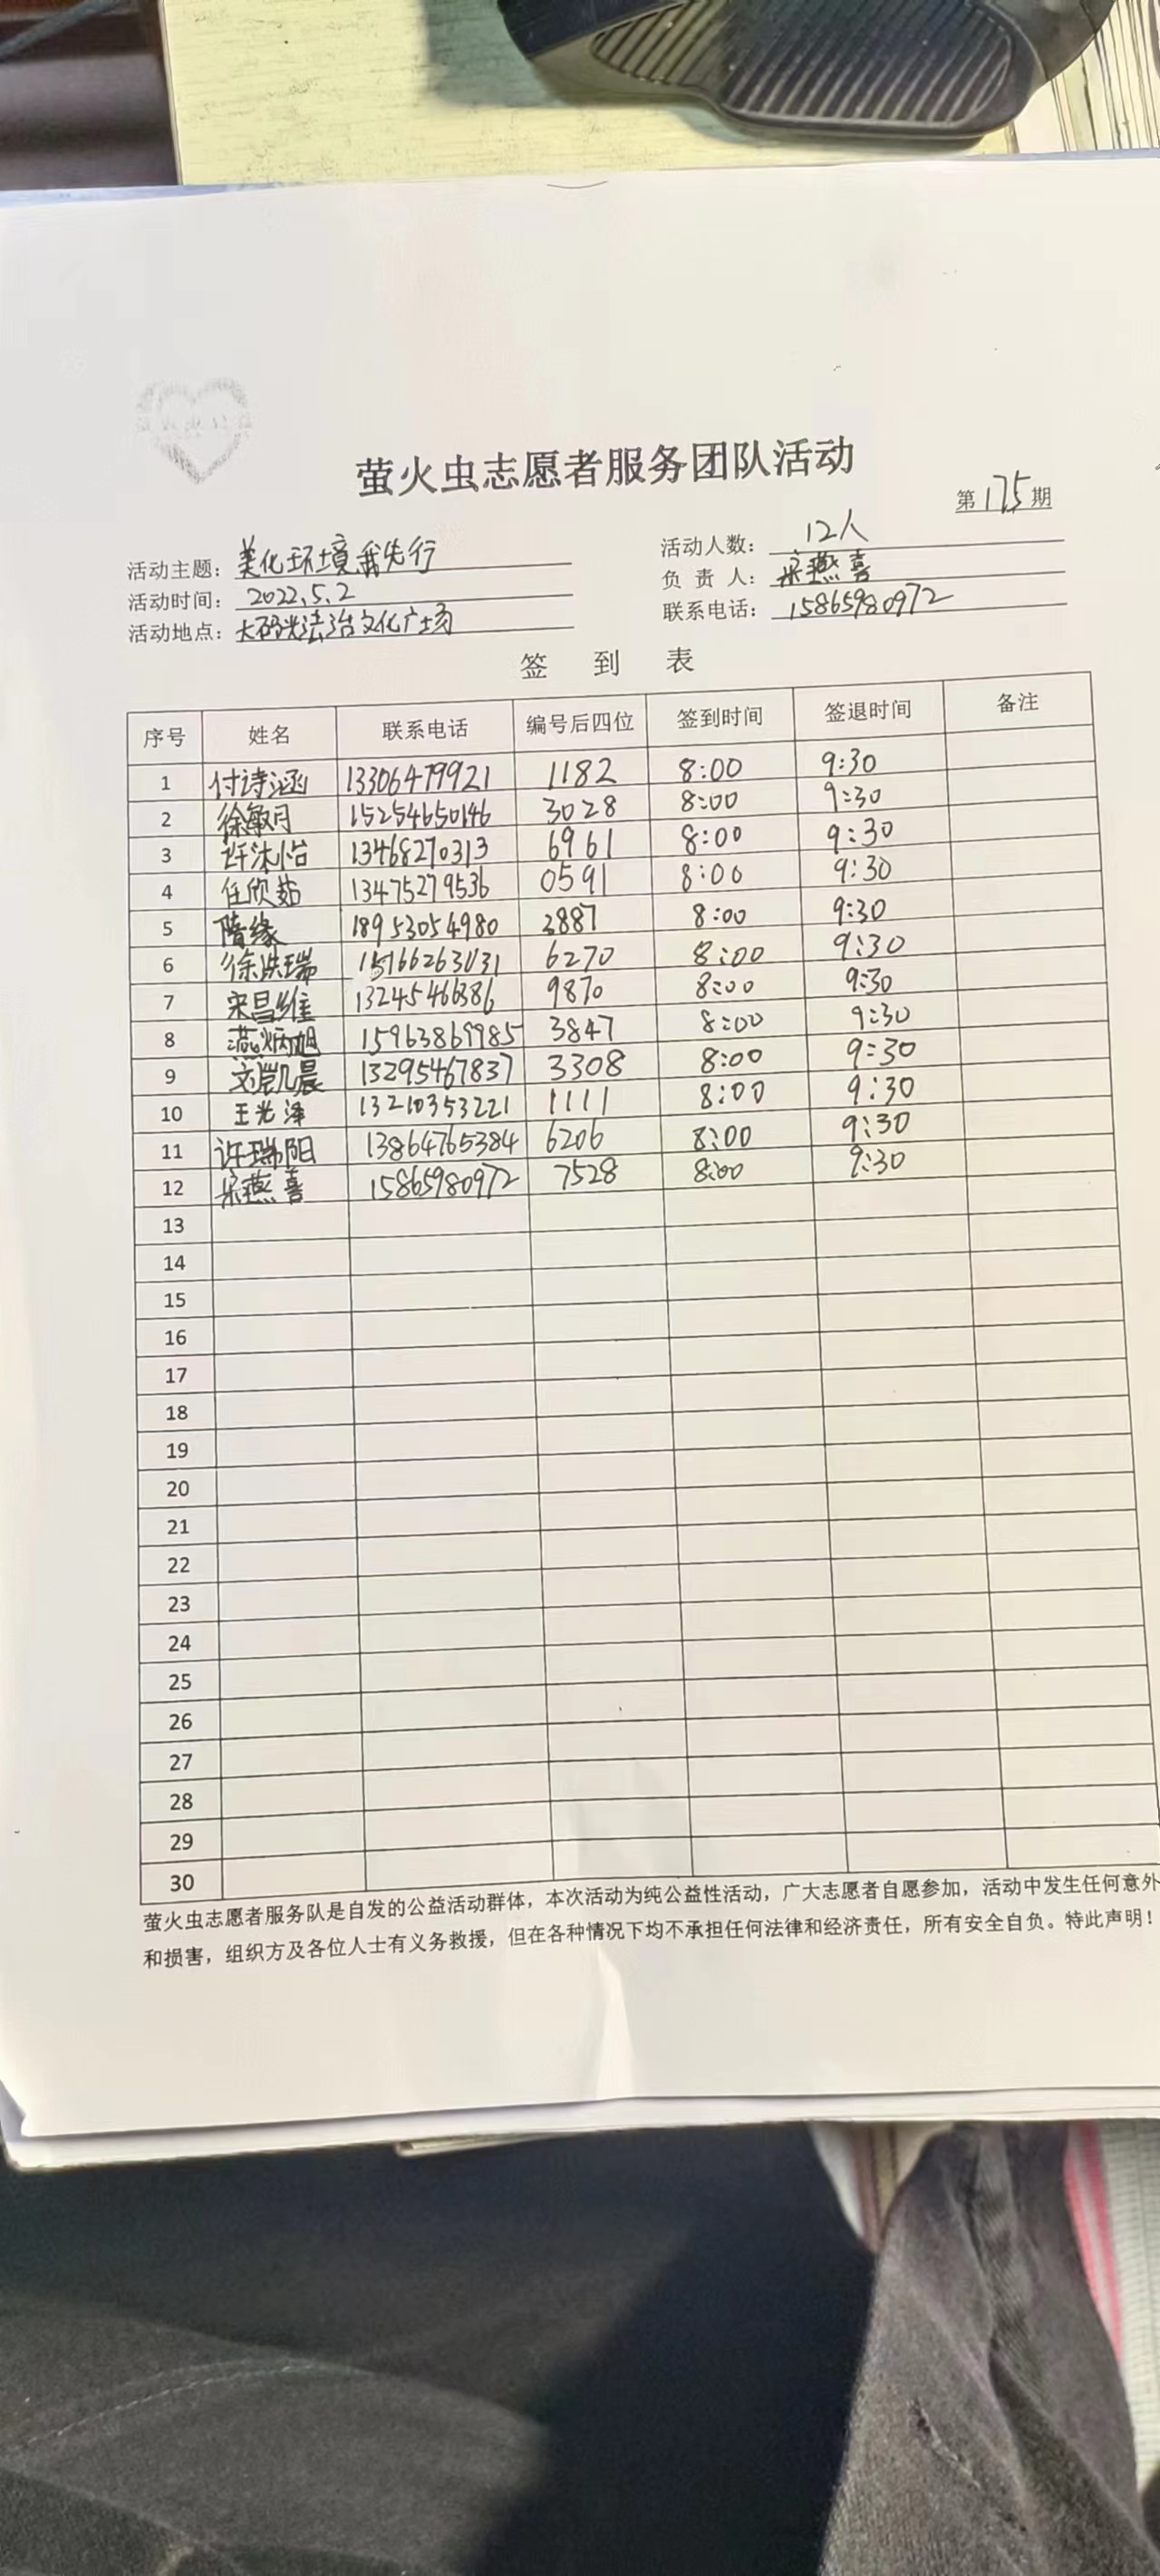 萤火虫志愿者服务团队活动
第175期
活动主题：美化环境我先行 活动人数：12人
活动时间：2022.5.2 负责人：宋燕喜
活动地点：大码头法治文化广场 联系电话：15865980972
签到表
序号 姓名 联系电话 编号后四位 签到时间 签退时间 备注
1 付诗涵 13306479921 1182 8:00 9:30
2 徐敏月 15254650146 3028 8:00 9:30
3 许沐怡 13468270313 6961 8:00 9:30
4 任欣茹 13475279536 0591 8:00 9:30
5 隋缘 18953054980 3887 8:00 9:30
6 徐洪瑞 15166263131 6270 8:00 9:30
7 宋昌维 13245466386 9870 8:00 9:30
8 燕炳旭 15963869985 3847 8:00 9:30
9 刘凯晨 13295467837 3308 8:00 9:30
10 王光泽 13210353221 1111 8:00 9:30
11 许瑞阳 13864765384 6206 8:00 9:30
12 宋燕喜 15865980972 7528 8:00 9:30
13
14
15
16
17
18
19
20
21
22
23
24
25
26
27
28
29
30
萤火虫志愿者服务队是自发的公益活动群体，本次活动为纯公益性活动，广大志愿者自愿参加，活动中发生任何意外
和损害，组织方及各位人士有义务救援，但在各种情况下均不承担任何法律和经济责任，所有安全自负。特此声明！